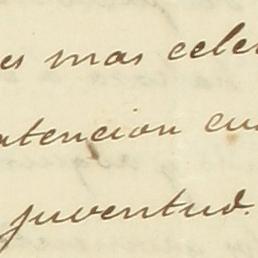 es mas cele
atencion cu
juventud.